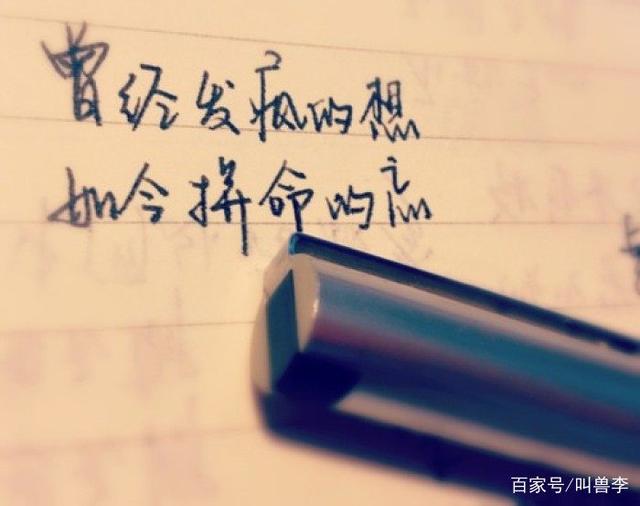 曾经发疯的想
如今拼命的忘
百家号/叫兽李